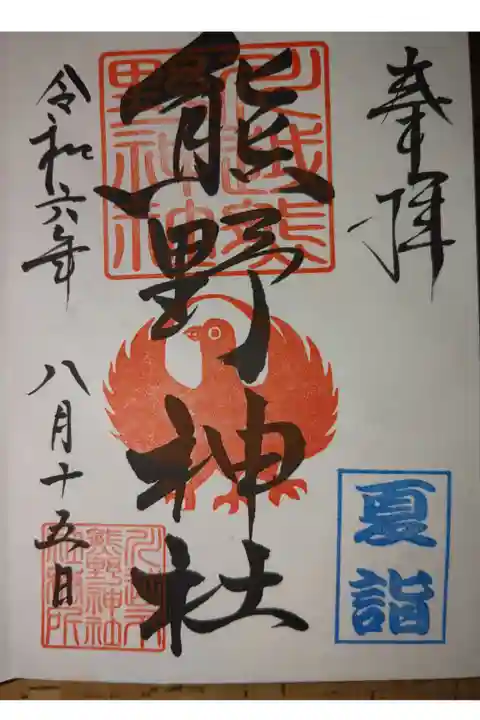 奉拝
夏詣
熊野神社
川越熊
野神社
令和六年 八月十五日
熊野神社